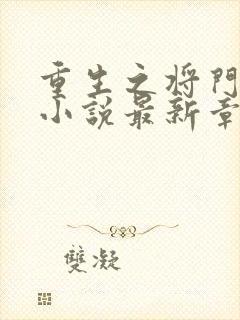 重生之将門
小說最新章
雙凝